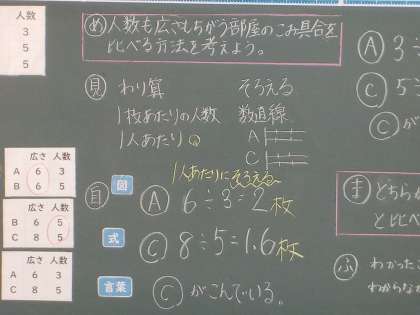 人数
3
5
5
め 人数も広さもちがう部屋のこみ具合を
比べる方法を考えよう。
見 わり算 そろえる
1枚あたりの人数 数直線
1人あたり
A
C
広さ 人数
A 6 3
B 6 5
広さ 人数
B 6 5
C 8 5
広さ 人数
A 6 3
C 8 5
1人あたりにそろえる
自 図 A 6÷3=2枚
式 C 8÷5=1.6枚
言葉 C がこんでいる。
A 3÷
C 5÷
C が
ま どちら
と比べ
ふ わかったこ
わからな